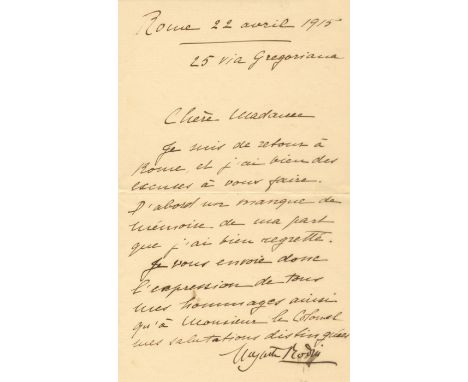 Rome 22 avril 1915
25 via Gregoriana
Chère Madame
Je suis de retour à
Rome, et j'ai bien des
excuses à vous faire.
D'abord un manque de
mémoire de ma part
que j'ai bien regretté.
Je vous envoie donc
l'expression de tous
mes hommages ainsi
qu'à Monsieur le Colonel
mes salutations distinguées
Auguste Rodin